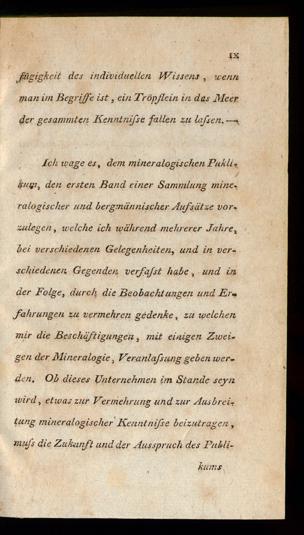 IX
fügigkeit des individuellen Wissens, wenn
man im Begriffe ist, ein Tröpflein in das Meer
der gesammten Kenntnisse fallen zu lassen. —
Ich wage es, dem mineralogischen Publi-
kum, den ersten Band einer Sammlung mine-
ralogischer und bergmännischer Aufsätze vor-
zulegen, welche ich während mehrerer Jahre,
bei verschiedenen Gelegenheiten, und in ver-
schiedenen Gegenden verfasst habe, und in
der Folge, durch die Beobachtungen und Er-
fahrungen zu vermehren gedenke, zu welchen
mir die Beschäftigungen, mit einigen Zwei-
gen der Mineralogie, Veranlassung geben wer-
den. Ob dieses Unternehmen im Stande seyn
wird, etwas zur Vermehrung und zur Ausbrei-
tung mineralogischer Kenntnisse beizutragen,
muss die Zukunft und der Ausspruch des Publi-
kums